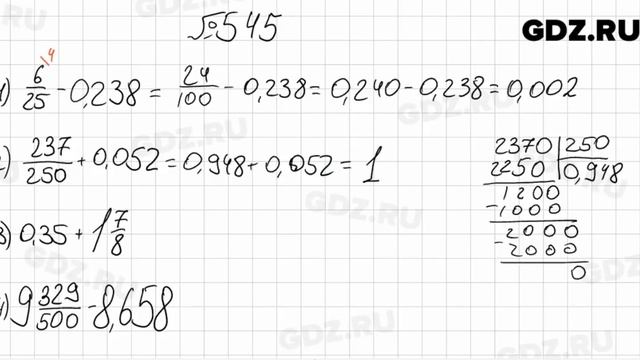 №545
GDZ.RU
1) 6/25 \4 - 0,238 = 24/100 - 0,238 = 0,240 - 0,238 = 0,002
2) 237/250 + 0,052 = 0,948 + 0,052 = 1
3) 0,35 + 1 7/8
4) 9 329/500 - 8,658
2370 | 250
2250 | 0,948
1200
- 1000
2000
- 2000
0
GDZ.RU
GDZ.RU
GDZ.RU
GDZ.RU
GDZ.RU